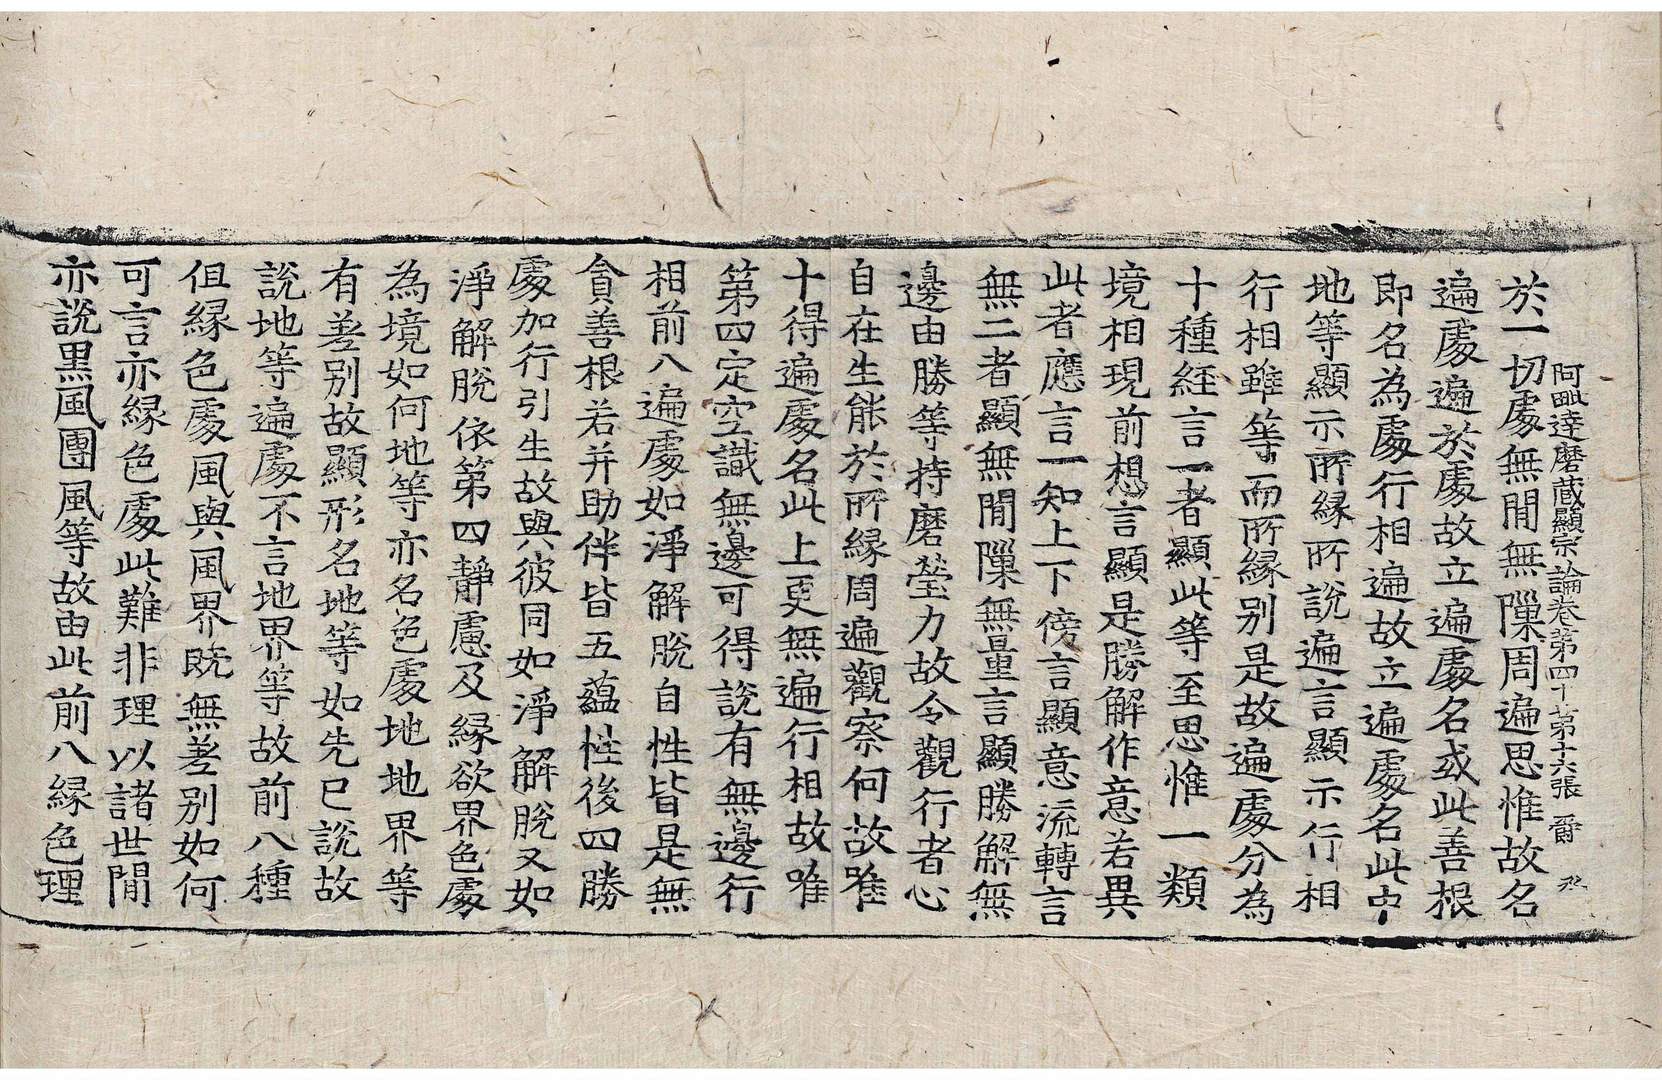 阿毗達磨藏顯宗論卷第四十 第十六張 爵
於一切處無閒無隟周遍思惟故名
遍處遍於處故立遍處名或此善根
即名為處行相遍故立遍處名此中
地等顯示所縁所說遍言顯示行相
行相雖等而所縁別是故遍處分為
十種経言一者顯此等至思惟一類
境相現前想言顯是勝解作意若異
此者應言一知上下傍言顯意流轉言
無二者顯無閒隟無量言顯勝解無
邊由勝等持磨瑩力故令觀行者心
自在生能於所縁周遍觀察何故唯
十得遍處名此上更無遍行相故唯
第四定空識無邊可得說有無邊行
相前八遍處如淨解脫自性皆是無
貪善根若并助伴皆五蘊性後四勝
處加行引生故與彼同如淨解脫又如
淨解脫依第四靜慮及縁欲界色處
為境如何地等亦名色處地地界等
有差別故顯形名地等如先已說故
說地等遍處不言地界等故前八種
但縁色處風與風界旣無差別如何
可言亦縁色處此難非理以諸世閒
亦說黒風團風等故由此前八縁色理